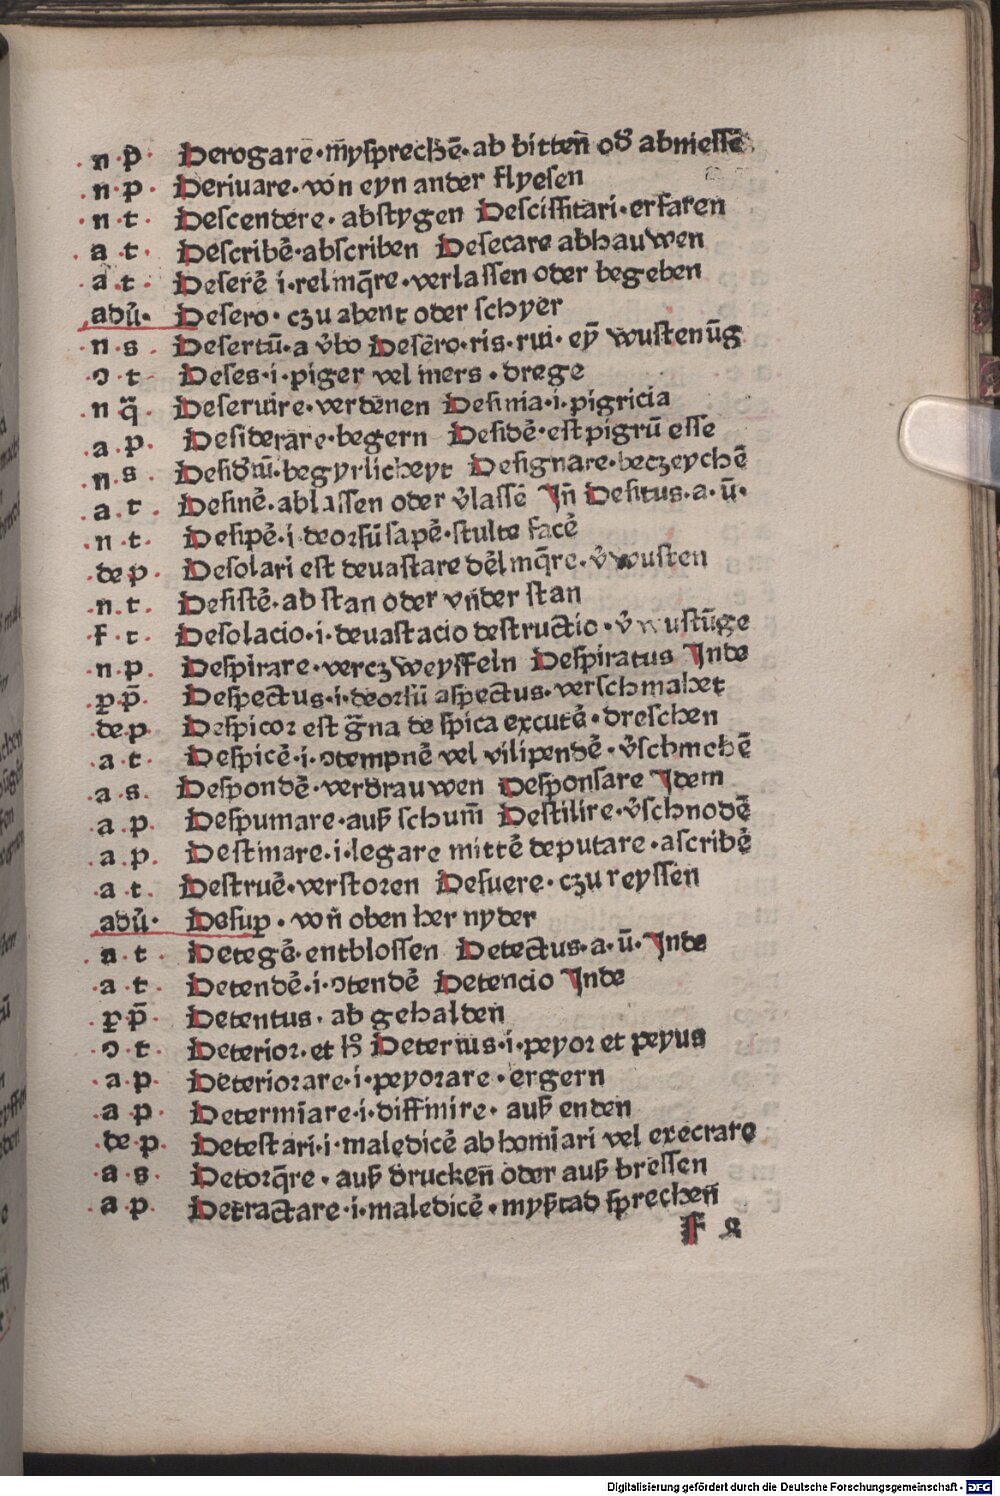 n p̄ Derogare·m̄ysprechē·ab bitten̄ od̛ abniessē
n·p· Deriuare·von eyn ander flyesen
n t· Descendere·abstygen Descissitari·erfaren
a t· Describē·abscriben Desecare abhauwen
a·t· Deserē i·relinq̄re·verlassen oder begeben
adū· Desero·czu abent oder schyer
n s· Desertū·a v̛bo Desēro·ris·rui·ey̅ wustenūg
ɔ t· Deses·i·piger vel iners·drege
n q̄· Deseruire·verdēnen Desinia·i·pigricia
a·p· Desiderare·begern Desidē·est pigrū esse
n·s· Desid̛iū·begyrlicheyt Designare·beczeychē
a·t· Desinē·ablassen oder v̛lassē Jn̄ Desitus·a·ū·
n·t· Desipē·i·deorsū sapē·stulte facē
de p· Desolari est deuastare dēlinq̄re·v̛wusten
n·t· Desistē·ab stan oder vn̄der stan
f·t· Desolacio·i·deuastacio destructio·v̛wustūge
n·p· Despirare·verczweyffeln Despiratus Jnde
ꝑ·p̄· Despectus·i·deorsū aspectus·verschmahet
de p Despicor est g̅na de spica excutē·dreschen
a·t· Despicē·i·ɔtempnē vel vilipendē·v̛schmehē
a·s· Despondē·verdrauwen Desponsare Jdem
a·p· Despumare·auß schum̄ Destilire·v̛schnodē
a·p· Destinare·i·legare mittē deputare·ascribē
a·t· Destruē·verstoren Desuere·czu reyssen
adū· Desuꝑ·von̄ oben her nyder
a·t· Detegē·entblossen Detectus·a·ū·Jnde
a·t· Detendē·i·ɔtendē Detencio Jnde
ꝑ p̄· Detentus·ab gehalden
ɔ·t· Deterior·et h̛ Deterius·i·peyor et peyus
a·p· Deteriorare·i·peyorare·ergern
a p· Determiare·i·diffinire·auß enden
de p· Detestari·i·maledicē abhomiari vel execrare
a·s· Detorq̄re·auß drucken̄ oder auß bressen
a p· Detractare·i·maledicē·myßtad sprechen̄
f